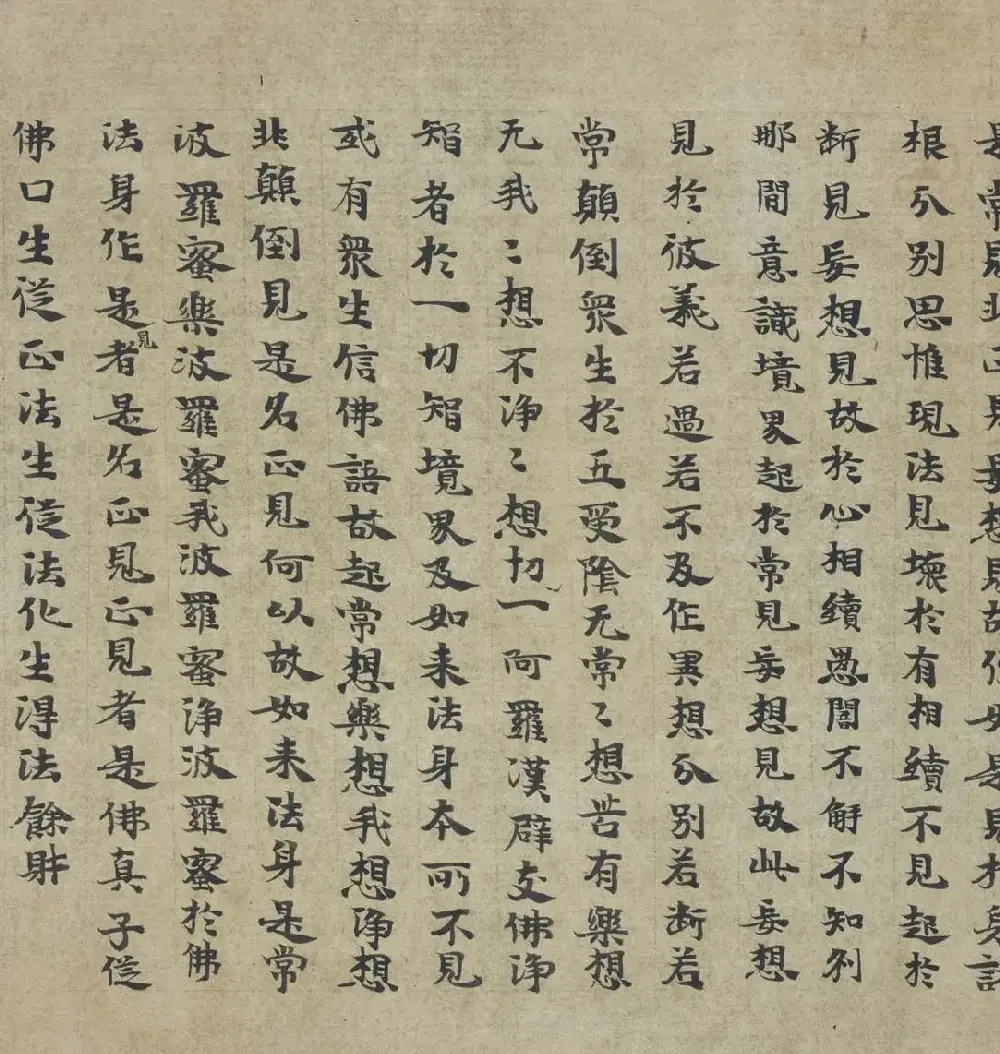 是常見非正見妄想見故作如是見於身諸
根分別思惟現法見壞於有相續不見起於
断見妄想見故於心相續愚闇不解不知刹
那間意識境界起於常見妄想見故此妄想
見於彼義若過若不及作異想分別若断若
常顛倒衆生於五受陰无常〻想苦有樂想
无我〻想不淨〻想切一阿羅漢辟支佛淨
智者於一切智境界及如来法身本所不見
或有衆生信佛語故起常想樂想我想淨想
非顛倒見是名正見何以故如来法身是常
波羅蜜樂波羅蜜我波羅蜜淨波羅蜜於佛
法身作是見者是名正見正見者是佛真子從
佛口生從正法生從法化生得法餘財